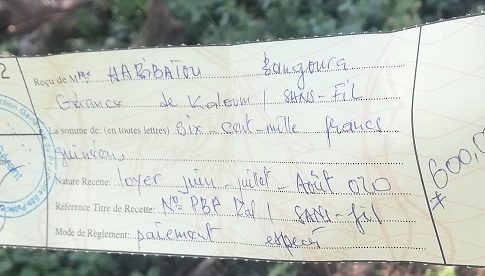 2
Reçu de Mme HABIBATOU Bangoura
Gérance de Kaloum / SANS-FIL
la somme de (en toutes lettres) Six-cent-mille francs
guinéens
Nature Recette: loyer juin-juillet-Août 020
Référence Titre de Recette: N° PBP Kal / SANS-fil
Mode de Règlement: paiement espèces
600,0